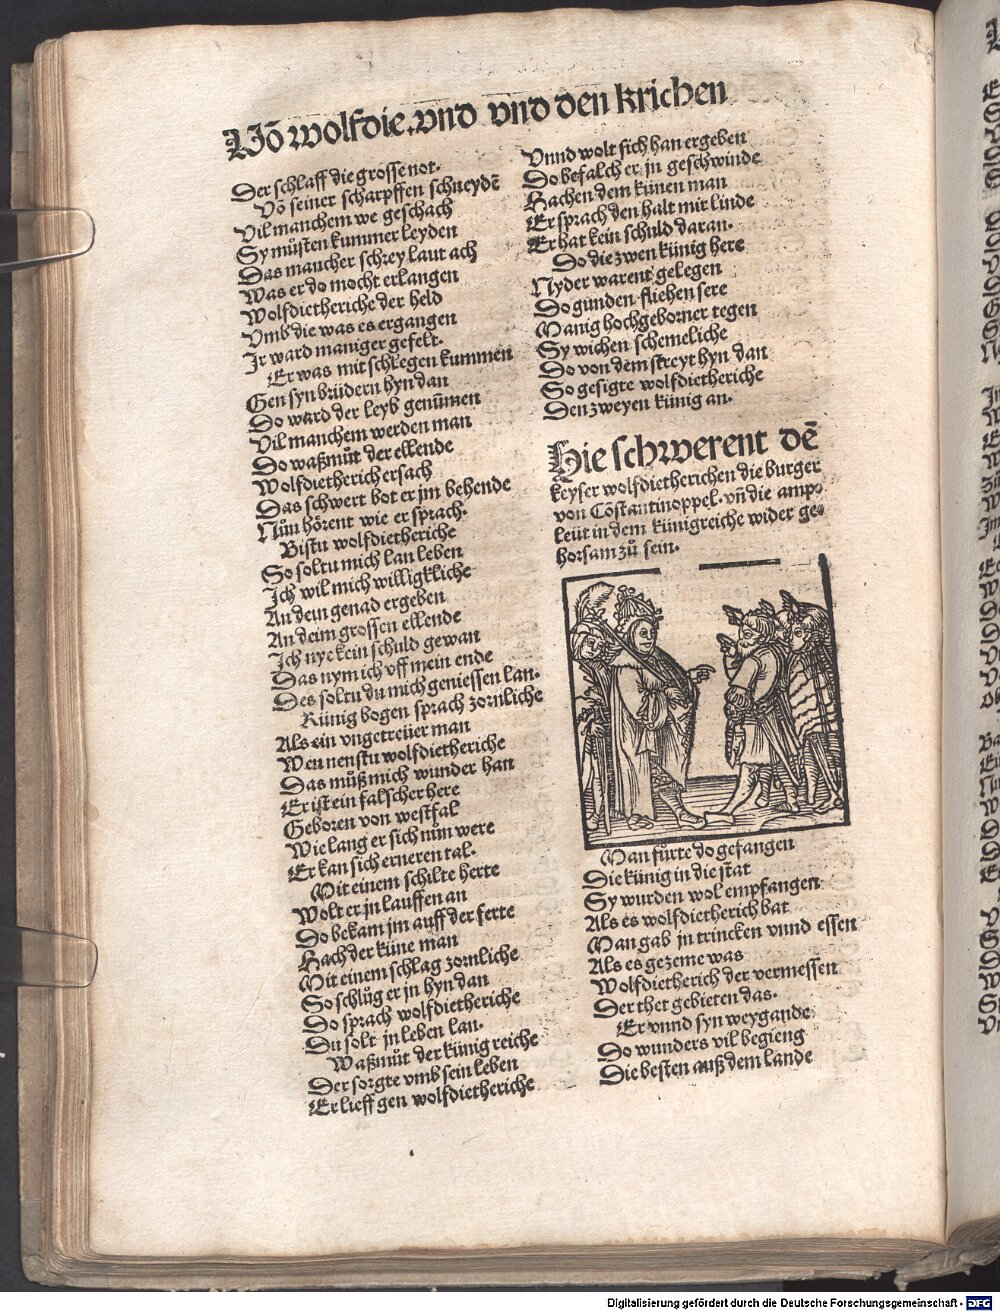 Võ wolfdie.vnd vnd den krichen
Der schlaff die grosse not.
Võ seiner scharpffen schneydẽ
Vil manchem we geschach
Sy muͤsten kummer leyden
Das mancher schrey laut ach
Was er do mocht erlangen
Wolfdietheriche der held
Vmb die was es ergangen
Jr ward maniger gefelt.
Er was mit schlegen kummen
Gen syn bruͤdern hyn dan
Do ward der leyb genum̃en
Vil manchem werden man
Do waßmuͦt der ellende
Wolfdietherich ersach
Das schwert bot er jm behende
Nuͦn hoͤrent wie er sprach.
Bistu wolfdietheriche
So soltu mich lan leben
Jch wil mich willigkliche
An dein genad ergeben
An deim grossen ellende
Jch nye kein schuld gewan
Das nym ich vff mein ende
Des soltu du mich geniessen lan.
Kuͤnig bogen sprach zornliche
Als ein vngetreuͤer man
Wen nenstu wolfdietheriche
Das muͦß mich wunder han
Er ist ein falscher here
Geboren von westfal
Wie lang er sich nuͦn were
Er kan sich erneren tal.
Mit einem schilte herte
Wolt er jn lauffen an
Do bekam jm auff der ferte
Hach der kuͤne man
Mit einem schlag zornliche
So schluͦg er jn hyn dan
Do sprach wolfdietheriche
Du solt jn leben lan.
Waßmuͦt der kuͤnig reiche
Der sorgte vmb sein leben
Er lieff gen wolfdietheriche
Vnnd wolt sich han ergeben
Do befalch er jn geschwinde
Hachen dem kuͤnen man
Er sprach den halt mir linde
Er hat kein schuld daran.
Do die zwen kuͤnig here
Nyder warent gelegen
Do gunden fliehen sere
Manig hochgeborner tegen
Sy wichen schemeliche
Do von dem streyt hyn dan
So gesigte wolfdietheriche
Den zweyen kuͤnig an.
Hie schwerent dẽ
keyser wolfdietherichen die burger
von Cõstantinoppel. vñ die amp⸗
leuͤt in dem kuͤnigreiche wider ge⸗
horsam zuͦ sein.
Man fuͤrte do gefangen
Die kuͤnig in die stat
Sy wurden wol empfangen
Als es wolfdietherich bat
Man gab jn trincken vnnd essen
Als es gezeme was
Wolfdietherich der vermessen
Der thet gebieten das.
Er vnnd syn weygande
Do wunders vil begieng
Die besten auß dem lande
Digitalisierung gefördert durch die Deutsche Forschungsgemeinschaft - DFG